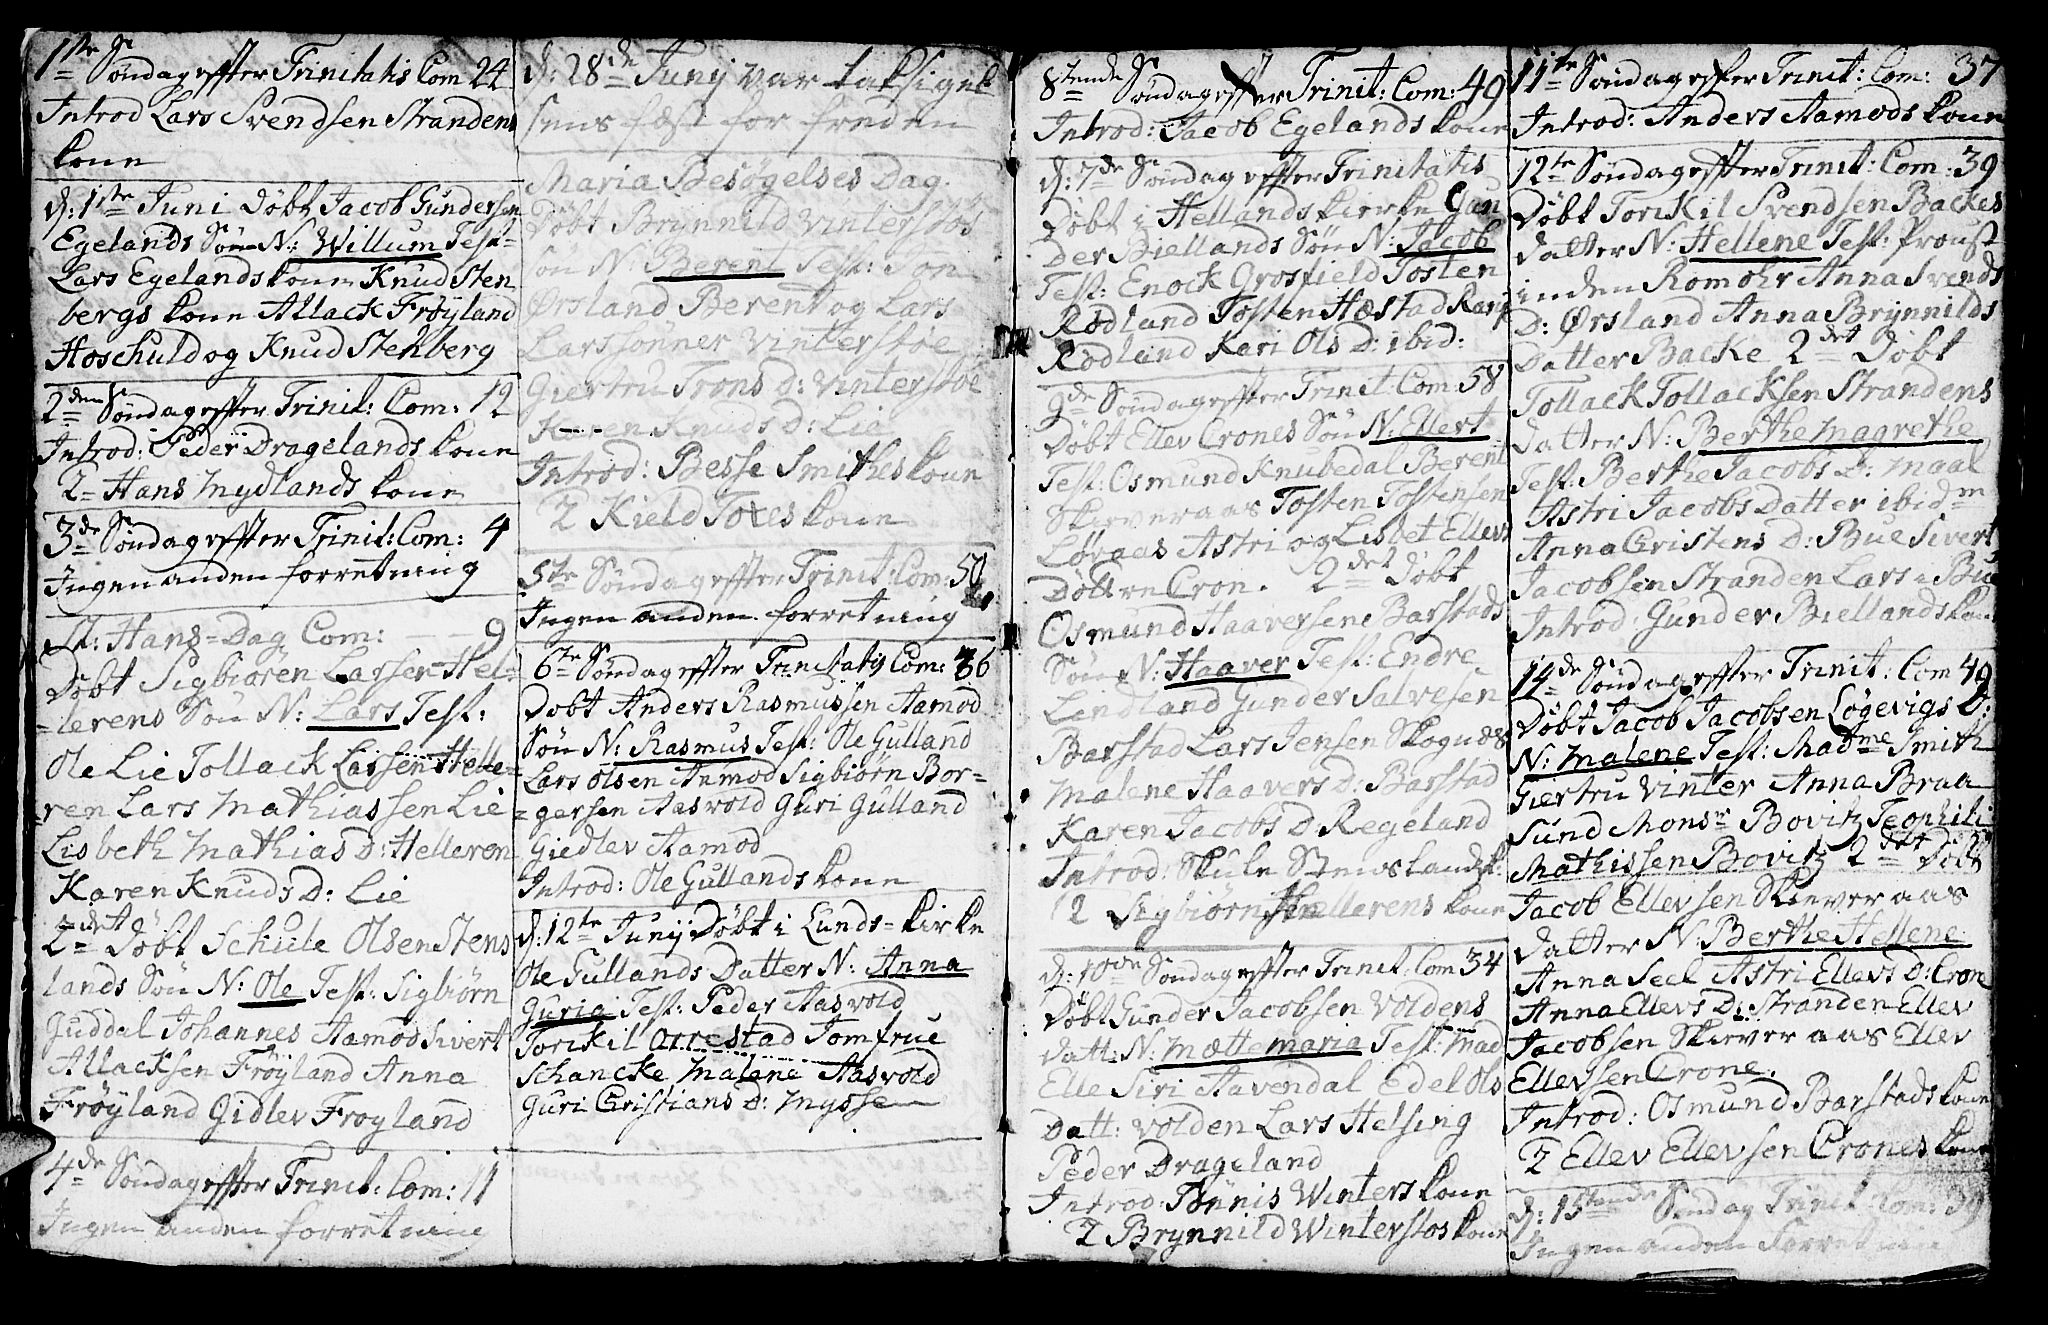 1ste Søndag effter Trinitatis Com 24
Introd Lars Svendsen Strandens
kone
d: 1ste Juni Døbt Jacob Gundersen
Egelands Søn N: Willum Test:
Lars Egelands kone Knud Sten
bergs kone Atlack Frøyland
Hoschuld og Knud Stenberg
2den Søndag effter Trinit: Com: 12
Introd: Peder Dragelands kone
2 Hans Mydlands kone
3de Søndag effter Trinit: Com: 4
Ingen anden forretning
St: Hans=Dag Com: 9
Døbt Sigbiøren Larsen Hel=
=lerens Søn N: Lars Test:
Ole Lie Tollack Larsen Helle=
=ren Lars Mathiassen Lie
Lisbeth Mathias D: Helleren
Karen Knuds D: Lie
2det Døbt Schule Olsen Stens
lands Søn N: Ole Test: Sigbiørn
Guddal Johannes Aamod Sivert
Atlacksen Frøyland Anna
Frøyland Gidlev Frøyland
4de Søndag effter Trinit: Com: 11
Ingen anden forretning
d: 28de Junij var taksigel
sens fæst for freden
Maria Besøgelses Dag.
Døbt Brynnild Vinterstøs
søn N: Berent Test: Jon
Ørsland Berent og Lars
Larssønner Vinterstøe
Giertru Trons D: Vinterstøe
Karen Knuds D: Lie
Introd: Besse Smithes kone
2 Kield Totes kone
5te Søndag effter Trinit: Com: 50
Ingen anden forretning
6te Søndag effter Trinitatis Com: 36
Døbt Anders Rasmussen Aamod
Søn N: Rasmus Test: Ole Gulland
Lars Olsen Aamod Sigbiørn Bor=
=gersen Aasvold Guri Gulland
Giedlev Aamod
Introd: Ole Gullands kone
d: 12te Junij Døbt i Lunds=kirke
Ole Gullands Datter N: Anna
Guria Test: Peder Aasvold
Torkil Orrestad Jomfrue
Schancke Malene Aasvold
Guri Cristians D: Myssen
8tende Søndag effter Trinit: Com: 49
Introd: Jacob Egelands kone
d: 7de Søndag effter Trinitatis
Døbt i Hellands kierke Gun
der Biellands Søn N: Jacob
Test: Enock Grosfield Tosten
Rødland Tosten Hæstad
Rødland Kari Ols D: ibid:
9de Søndag effter Trinit: Com: 58
Døbt Ellev Crones Søn N: Ellert
Test: Osmund Knubedal Berent
Skieveraas Tosten Tostensen
Løvaas Astri og Lisbet Ellevs
Døttre Cron. 2det Døbt
Osmund Haaversen Barstads
Søn N: Haaver Test: Endre
Lindland Gunder Salvesen
Barstad Lars Jensen
Malene Haavers D: Barstad
Karen Jacobs D: Regeland
Introd: Skule Stenslands k:
2 Sigbiørn Hellerens kone
d: 10de Søndag effter Trinit: Com 34
Døbt Gunder Jacobsen Voldens
Datt: N: Mættemaria Test: Mad
Elle Siri Aavendal Edel Ols
Datt: Volden Lars Helsing
Peder Drageland
Introd: Tønnis Winters kone
2 Brynnild Winterstøs kone
11te Søndag effter Trinit: Com: 37
Introd: Anders Aamods kone
12te Søndag effter Trinit: Com: 39
Døbt Torkil Svendsen Backes
datter N: Hellene Test: Proust
inden Romohr Anna Svends
D: Ørsland Anna Brynnilds
Datter Backe 2det Døbt
Tollack Tollacksen Strandens
datter N: Berthe Magrethe
Test: Berthe Jacobs D: Maal
Astri Jacobs Datter ibidm
Anna Cristens D: Bue Sivert
Jacobsen Stranden Lars Bue
Introd: Gunder Biellands kone
14de Søndag effter Trinit: Com 49
Døbt Jacob Jacobsen Løgevigs D:
N: Malene Test: Madme Smith
Giertru Vinter Anna Braa
Sund Monsr Bovitz Teophili
Mathissen Bovitz 2det Døbt
Jacob Ellevsen Skieveraas
datter N: Berthe Hellene
Anna Seel Astri Ellevs D: Crone
Anna Ellevs D: Stranden Ellev
Jacobsen Skieveraas Ellev
Ellevsen Crone.
Introd: Osmund Barstads kone
2 Ellev Ellevsen Crones kone
d: 15tende Søndag Trinit Com: 39
Ingen anden forretnin